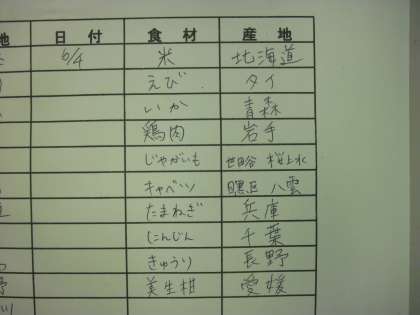 地 日付 食材 産地
6/4 米 北海道
えび タイ
いか 青森
鶏肉 岩手
じゃがいも 世田谷 桜上水
キャベツ 目黒区 八雲
たまねぎ 兵庫
にんじん 千葉
きゅうり 長野
美生柑 愛媛